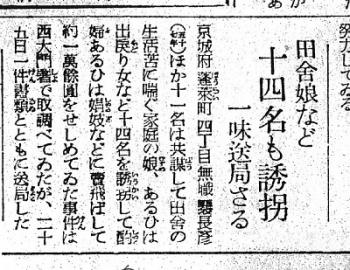 努力してゐる
田舎娘など
十四名も誘拐
一味送局さる
京城府蓬莱町四丁目無職
長彦
ほか十一名は共謀して田舎の
生活苦に喘ぐ家庭の娘、あるひは
出戻り女など十四名を誘拐して酌
婦あるひは娼妓などに賣飛ばして
約一萬餘圓をせしめてゐた事件は
西大門署で取調べてゐたが、二十
五日一件書類とともに送局した